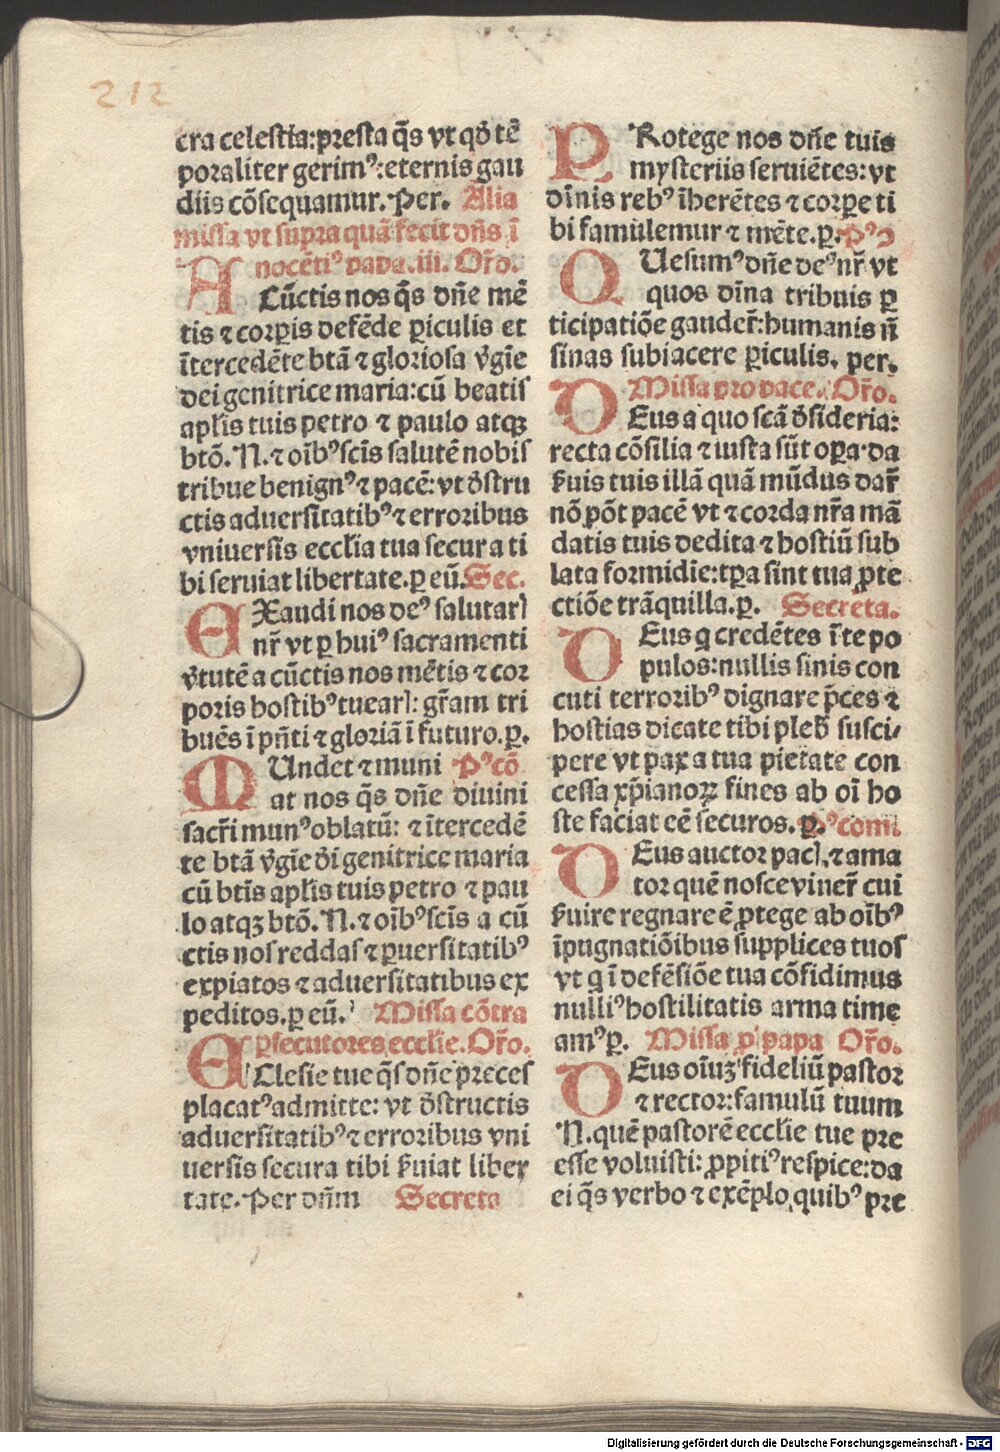 212
cra celestia:presta q̃s vt qd̕ tẽ
poraliter gerimꝰ:eternis gau
diis cõsequamur. Per. Alia
missa vt supra quã fecit dñs ĩ
nocẽtiꝰ papa.iii. Or̃o.
A Cũctis nos q̃s dñe mẽ
tis ⁊ corꝑis defẽde ꝑiculis et
ĩtercedẽte btã ⁊ gloriosa v̕gĩe
dei genitrice maria:cũ beatis
apl̃is tuis petro ⁊ paulo atqꝫ
btõ. N. ⁊ oĩbꝰ scĩs salutẽ nobis
tribue benignꝰ ⁊ pacẽ: vt d̕stru
ctis aduersitatibꝰ ⁊ erroribus
vniuersis eccl̃ia tua secura ti
bi seruiat libertate. ꝑ eũ. Sec.
EXaudi nos deꝰ salutarꝭ
nr̃ vt ꝑ huiꝰ sacramenti
v̕tutẽ a cũctis nos mẽtis ⁊ cor
poris hostibꝰ tuearꝭ: gr̃am tri
buẽs ĩ pñti ⁊ gloriã ĩ futuro. ꝑ.
MUndet ⁊ muni Pꝰcõ
at nos q̃s dñe diuini
sacr̃i munꝰ oblatũ: ⁊ ĩtercedẽ
te btã v̕gĩe d̕i genitrice maria
cũ btĩs apl̃is tuis petro ⁊ pau
lo atqꝫ btõ. N. ⁊ oĩbꝰ scĩs a cũ
ctis nos reddas ⁊ ꝑuersitatibꝰ
expiatos ⁊ aduersitatibus ex
peditos. ꝑ eũ. Missa cõtra
ꝑsecutores eccl̃ie. Or̃o.
EClesie tue q̃s dñe preces
placatꝰ admitte: vt d̕structis
aduersitatibꝰ ⁊ erroribus vni
uersis secura tibi s̕uiat liber
tate. Per dñm Secreta
PRotege nos dñe tuis
mysteriis seruiẽtes: vt
dĩnis rebꝰ ĩherẽtes ⁊ corꝑe ti
bi famulemur ⁊ mẽte. ꝑ. Pꝰꝯ
QUesumꝰ dñe deꝰ nr̃ vt
quos dĩna tribuis ꝑ
ticipatiõe gauder̃: humanis ñ
sinas subiacere ꝑiculis. per.
Missa pro pace. Or̃o.
DEus a quo scã d̕sideria:
recta cõsilia ⁊ iusta sũt oꝑa. da
s̕uis tuis illã quã mũdus dar̃
nõ põt pacẽ vt ⁊ corda nr̃a mã
datis tuis dedita ⁊ hostiũ sub
lata formidĩe: tꝑa sint tua ꝓte
ctiõe trãquilla. ꝑ. Secreta.
DEus q credẽtes ĩ te po
pulos: nullis sinis con
cuti terroribꝰ dignare p̃ces ⁊
hostias dicate tibi pleb̕ susci/
pere vt pax a tua pietate con
cessa xp̃ianoꝝ fines ab oĩ ho
ste faciat eẽ securos. ꝑ. Pꝰcom̃.
DEus auctor pacꝭ, ⁊ ama
tor quẽ nosce viuer̃ cui
s̕uire regnare ẽ ꝓtege ab oĩbꝰ
ĩpugnatiõibus supplices tuos
vt q ĩ defẽsiõe tua cõfidimus
nulliꝰ hostilitatis arma time
amꝰ ꝑ. Missa ꝓ papa Or̃o.
DEus oĩuꝫ fideliũ pastor
⁊ rector: famulũ tuum
N. quẽ pastorẽ eccl̃ie tue pre
esse voluisti: ꝓpitiꝰ respice: da
ei q̃s verbo ⁊ exẽplo, quibꝰ pre
Digitalisierung gefördert durch die Deutsche Forschungsgemeinschaft - DFG